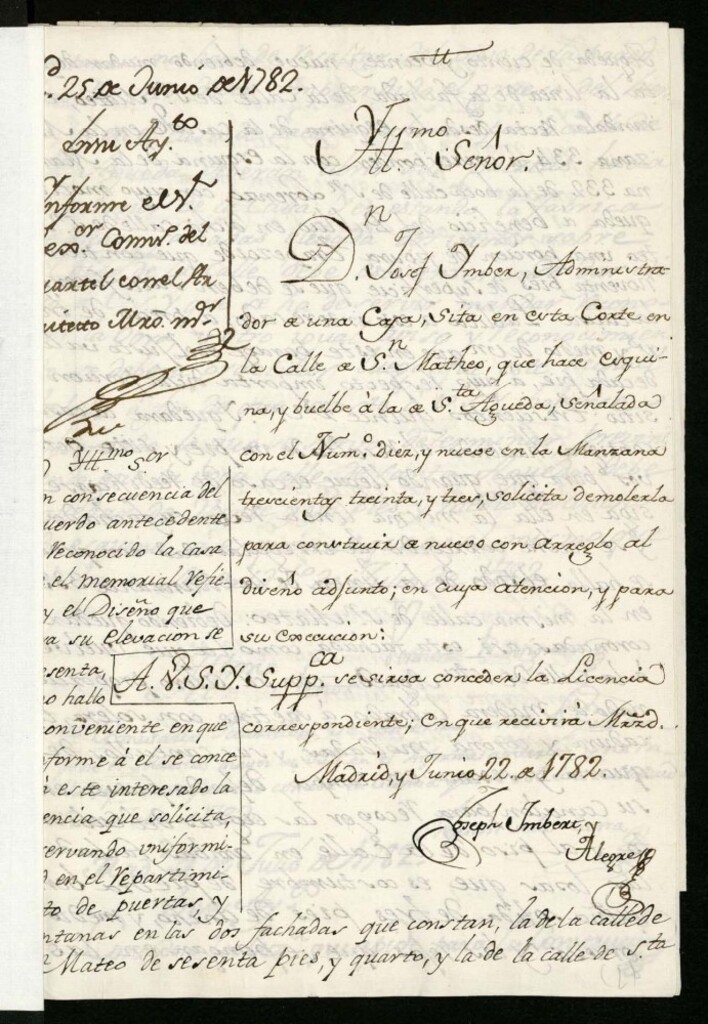 25 de Junio de 1782.
En su Ay.to
Ynforme el S.r
Comis.o del
uartel con el Ar
uitecto Mro. m.or
Yll.mo S.or
n consecuencia del
uerdo antecedente
Reconocido la Casa
el memorial Refie-
y el Diseño que
a su Elevacion se
esenta,
o hallo
onveniente en que
forme á el se conce
á este interesado la
encia que solicita,
ervando uniformi-
d en el Repartimi-
to de puertas, y
ntanas en las dos fachadas que constan, la de la calle de
Mateo de sesenta pies, y quarto, y la de la calle de S.ta
Yll.mo Señor.
D.n Josef Ymber, Administra-
dor de una Casa, sita en esta Corte en
la Calle de S.n Matheo, que hace esqui-
na, y buelbe à la de S.ta Agueda, señalada
con el Num.o diez, y nueve en la Manzana
trescientas treinta, y tres, solicita demolerla
para construir de nuevo con arreglo al
diseño adjunto; en cuya atencion, y para
su execucion:
A. V.S.Y. Supp.ca se sirva conceder la Licencia
correspondiente; en que recivirà Mrzd.
Madrid, y Junio 22. de 1782.
Joseph Imbert, y
Alegre